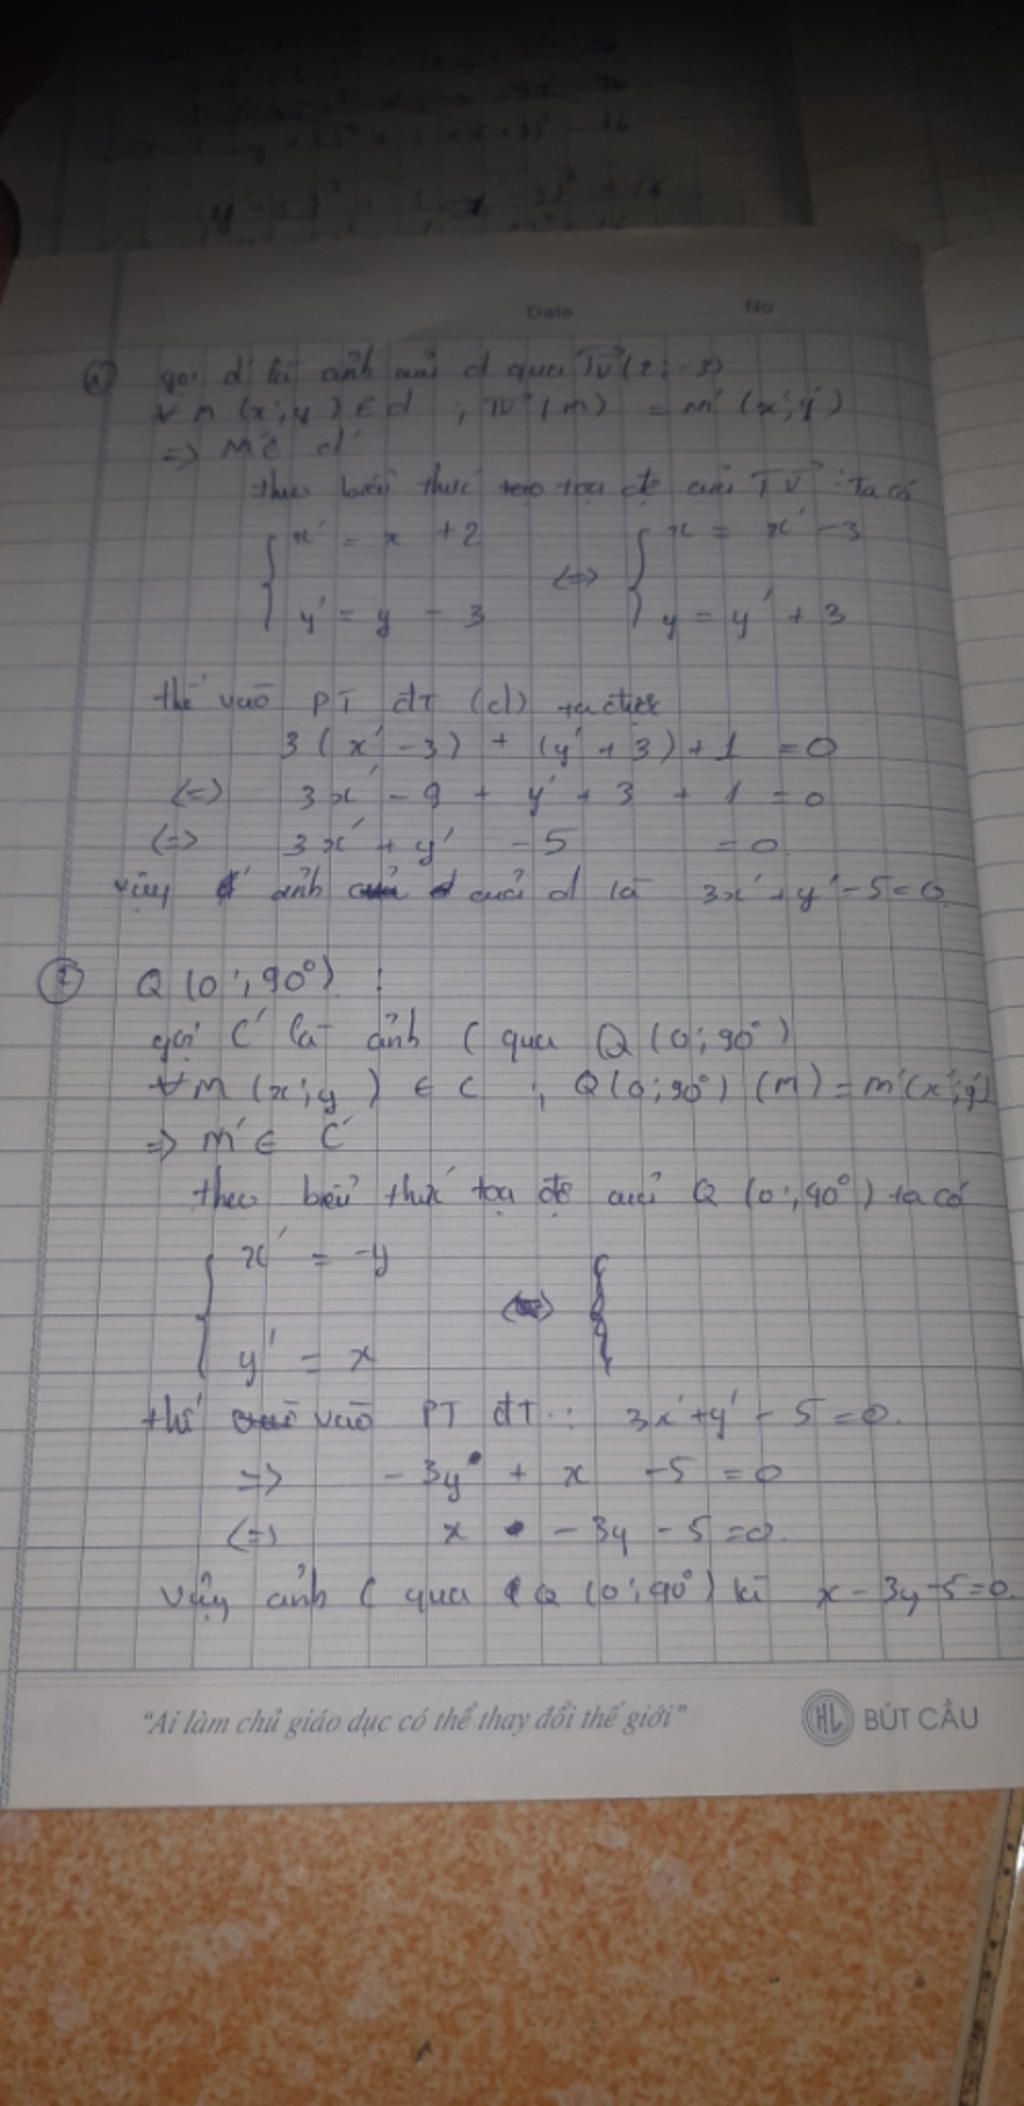 Date No
gọi d' là ảnh của d qua Tv (2; -3)
∀ M (x; y) ∈ d ; Tv (M) = M' (x'; y')
=> M' ∈ d'
theo biểu thức tọa độ của Tv : Ta có
{ x' = x + 2 <=> { x = x' - 3
{ y' = y - 3 { y = y' + 3
thế vào PT đT (d) ta được
3 (x' - 3) + (y' + 3) + 1 = 0
<=> 3x' - 9 + y' + 3 + 1 = 0
<=> 3x' + y' - 5 = 0
vậy ảnh của d là 3x' + y' - 5 = 0
② Q (0; 90°) :
gọi C' là ảnh C qua Q (0; 90°)
∀ M (x; y) ∈ C ; Q (0; 90°) (M) = M' (x'; y')
=> M' ∈ C'
theo biểu thức tọa độ của Q (0; 90°) ta có
{ x' = -y
{ y' = x
thế vào PT đT : 3x' + y' - 5 = 0.
=> - 3y + x - 5 = 0
<=> x - 3y - 5 = 0.
Vậy ảnh C qua Q (0; 90°) là x - 3y - 5 = 0.
"Ai làm chủ giáo dục có thể thay đổi thế giới" HL BÚT CẦU